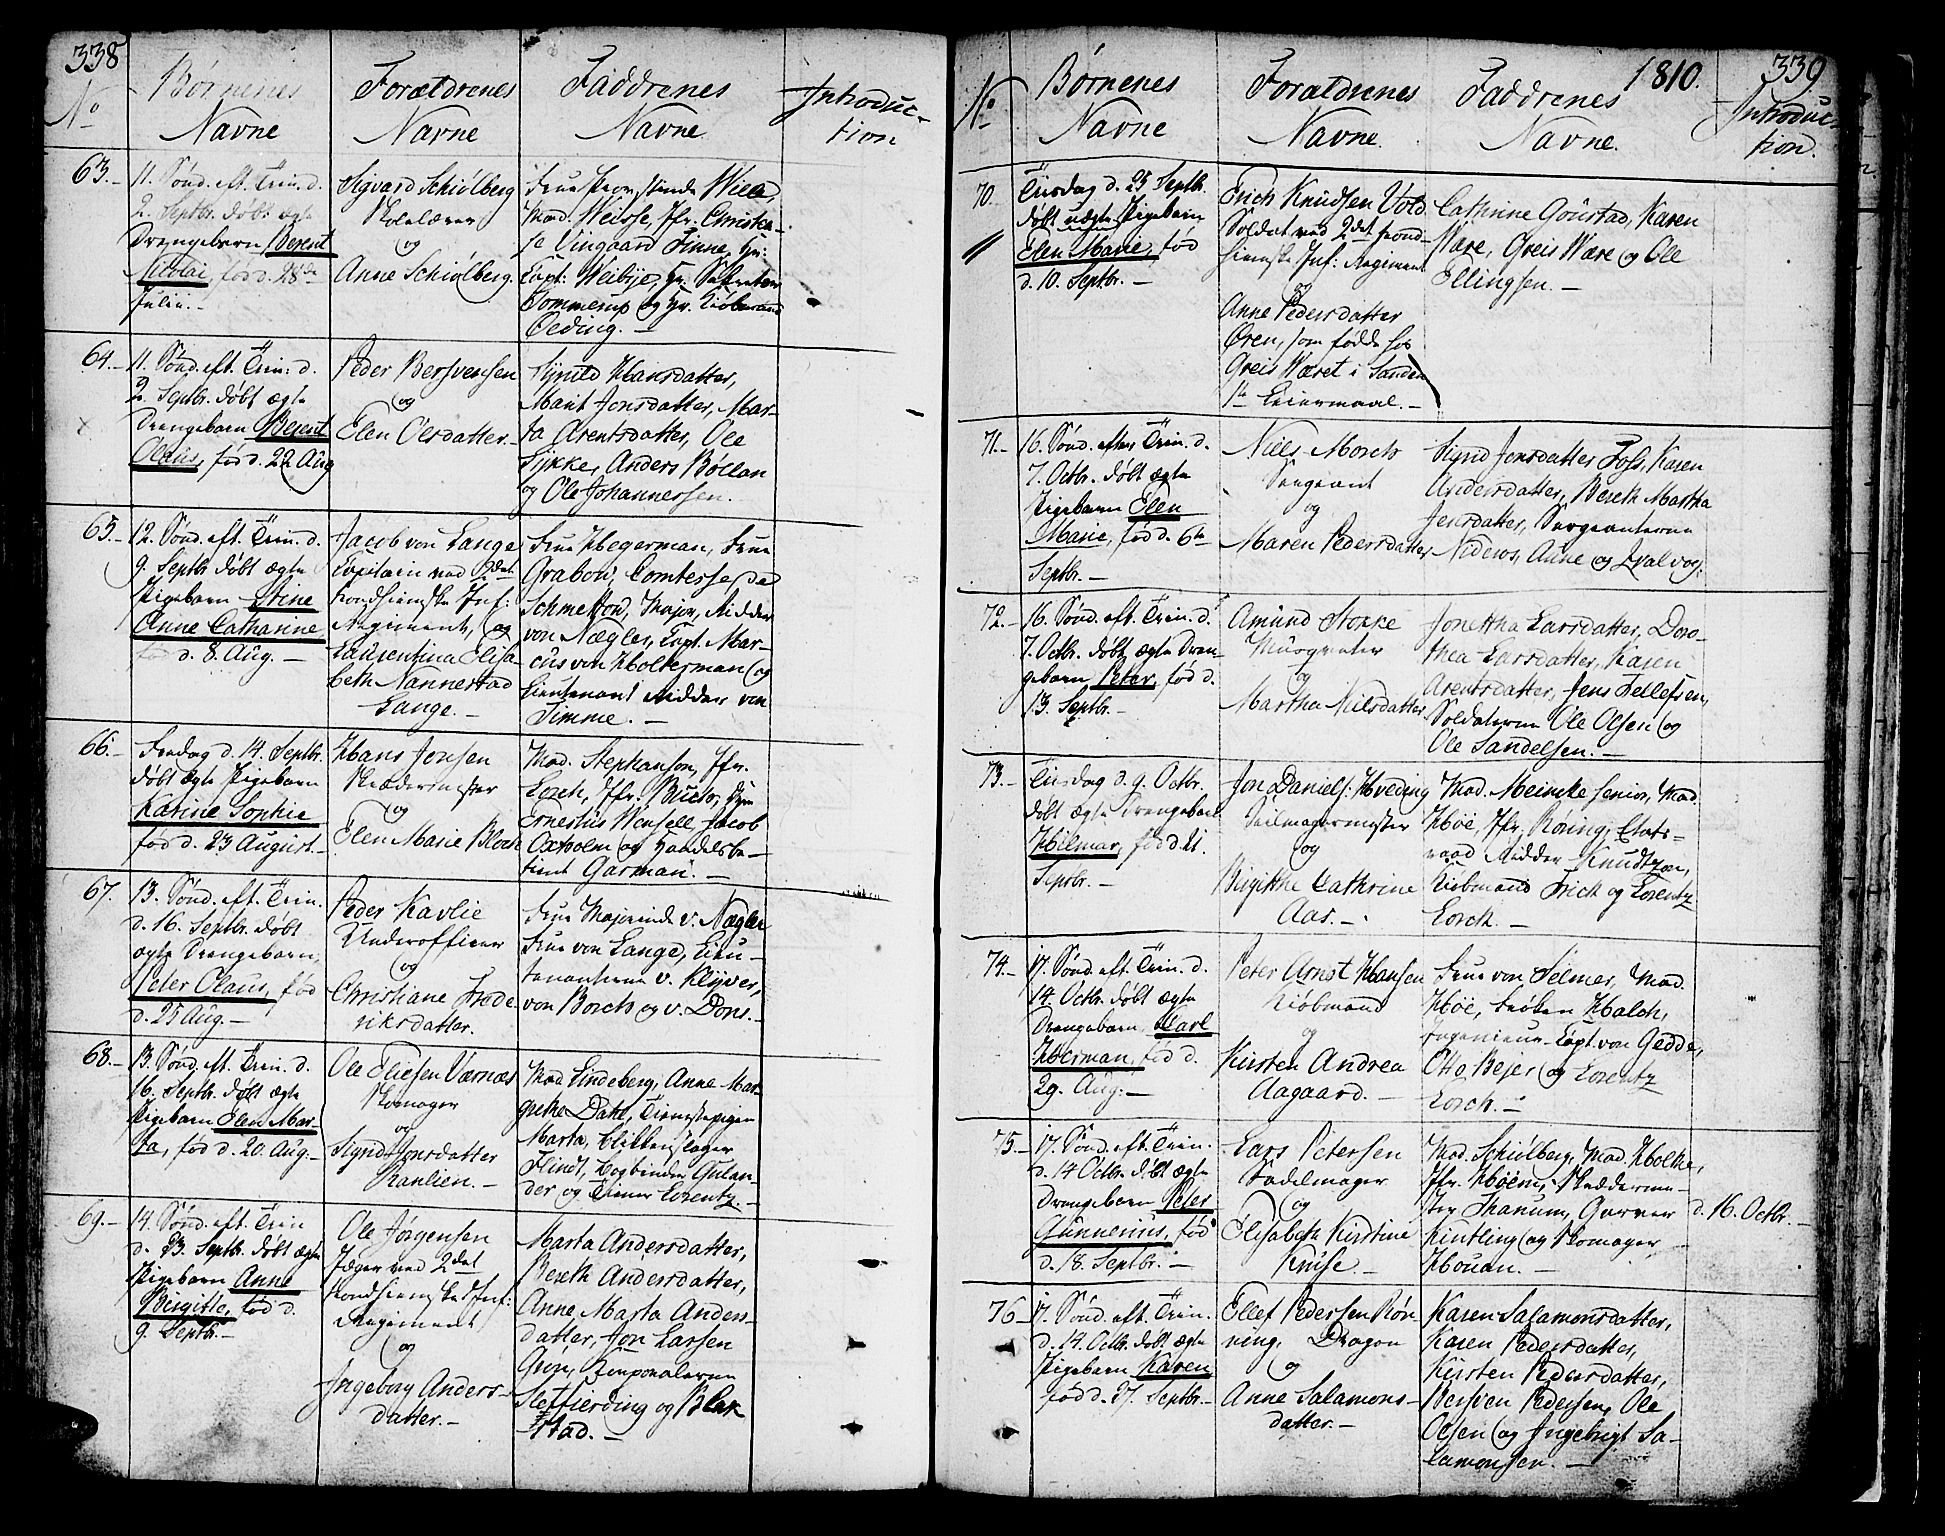 338
No
Børnenes
Navne
Forældrenes
Navne
Faddrenes
Navne
Introduc-
tion
63.-
11. Sönd. eft. Trin. d.
2. Septbr. döbt ægte
Drengebarn Berent
Nicolai, fød d. 28de
Julii.-
Sigvard Schiølberg
Skolelærer
og
Anne Schiølberg.
Frue Provstinde Wille,
Mad. Weisse, Jfr. Christia-
Finne, Hr.
Capt. Weibÿe, Hr.
Tommerup og Hr. Kiöbmand
Oeding. -
64.-
11. Sönd. eft. Trin: d.
2. Septbr. döbt ægte
Drengebarn Berent
Olaus, fød d. 22 Aug
Peder Bersvensen
og
Elen Olsdatter.-
Hansdatter,
Marit Jonsdatter, Mar-
ta Arentsdatter, Ole
Anders Böllan
og Ole Johannessen.
65.-
12. Sönd. eft. Trin. d.
9. Septbr döbt ægte
Pigebarn Stine
Anne Catharine
fød d. 8. Aug. -
Jacob von Lange
Capitain ved 2det
trondhiemske Inf:
Regiment, og
Laurentina Elisa-
beth Nannestad
Lange. -
Frue Hegerman, Frue
Grabou, Comtesse de
Schmettou, Major, Ridder
von Nægler, Capt. Mar-
cus von Holterman og
Lieutenant Ridder von
Timme. -
66.-
Fredag d. 14. Septbr.
döbt ægte Pigebarn
Karine Sophie
fød d. 23 August.-
Hans Jensen
Skræddermester
og
Elen Marie Block
Mad. Stephanson, Jfr.
Lorck, Jfr. Buch,
Ernestus Wensell, Jacob
Oxholm og Handelsbe-
tient Garman. -
67.
13. Sönd. eft. Trin.
d. 16. Septbr. döbt
ægte Drengebarn,
Peter Olaus, fød
d. 25 Aug. -
Peder Kavlie
Underofficier
og
Christiane Frede
riksdatter.
Frue Majorinde v. Nægler
Frue von Lange, Lieu-
tenanterne v. Klÿver,
von Borch og v. Dons.-
68.-
13. Sönd. eft. Trin. d.
16. Septbr. döbt ægte
Pigebarn Elen Mar-
ta, fød d. 20. Aug.-
Ole Eliesen Værnæs
Skomager
og
Sigrid Jonsdatter
Ranlien. -
Mad Lindeberg, Anne Mar-
grethe Dahl, Tienestepigen
Marta, Blikkenslager
Flindt, Bogbinder Gulan-
der og Tiener Lorentz. -
69.-
14. Sönd. eft. Trin
d. 23. Septbr. döbt ægte
Pigebarn Anne
Birgitte, fød d.
9. Septbr.-
Ole Jørgensen
Jæger ved 2det
trondhiemske Inf:
Regiment
og
Ingeborg Anders-
datter.-
Marta Andersdatter,
Bereth Andersdatter,
Anne Marta Anders-
datter, Jon Larsen
Grön, Corporalerne
Steffierding og Blek
stad. -
1810.
339
No
Børnenes
Navne
Forældrenes
Navne.
Faddrenes
Navne.
Introduc-
tion.
70.-
Tirsdag d. 25 Septbr.
döbt uægte Pigebarn
Elen Marie, fød
d. 10. Septbr. -
Erich Knudsen Vold
Soldat ved 2det trond-
hiemske Inf: Regiment
og
Anne Pedersdatter
Ören, som fødde hos
Greis Wæret i Sanden
1te Leiermaal. -
Cathrine Gourstad, Karen
Wære, Greis Wære og Ole
Ellingsen. -
71.-
16. Sönd. efter Trin. d.
7. Octbr. döbt ægte
Pigebarn Elen
Marie, fød d. 6te
Septbr. -
Niels Morch
Sergeant
og
Maren Pedersdatter
Sigrid Jonsdatter Foss, Karen
Andersdatter, Bereth Martha
Jensdatter, Sergeanterne
Nideros, Aune og Qvalvog.
72.-
16. Sönd. eft. Trin. d.
7. Octbr. döbt ægte Dren-
gebarn Peter, fød d.
13. Septbr. -
Amund Stokke
Muurmester
og
Martha Nilsdatter.
Jonettha Larsdatter, Doro-
thea Larsdatter, Karen
Arentsdatter, Jens Tellefsen,
Soldaterne Ole Olsen og
Ole Sandelsen. -
73.-
Tirsdag d. 9. Octbr.
döbt ægte Drengebarn
Hilmar, fød d. 21.
Septbr. -
Jon Daniels: Hveding
Seilmagermester
og
Birgitthe Cathrine
Aas. -
Mad. Meincke senior, Mad.
Höe, Jfr. Röring, Etats-
raad Ridder Knudtzon,
Kiöbmand Frich og Lorentz
Lorck. -
74.-
17. Sönd. eft. Trin. d.
14. Octbr. döbt ægte
Drengebarn Carl
Herman, fød d.
29. Aug: -
Peter Arnst Hansen
Kiöbmand
og
Kirsten Andrea
Aagaard. -
Frue von Selmer, Mad.
Höe, Fröken Halch,
Ingenieur-Capt. von Gedde,
Otto Bejer og Lorentz
Lorck. -
75.-
17. Sönd. eft. Trin.
d. 14 Octbr. döbt ægte
Drengebarn Peter
Gunnerius, fød
d. 18. Septbr. -
Lars Petersen
Sadelmager
og
Elisabeth Kirstine
Kruse. -
Mad. Schiölberg, Mad. Holte,
Jfr. Höern, Skrædderme-
ster Thanum, Garver
Kintling og Skomager
Houan. -
d. 16. Octbr. -
76-
17. Sönd. eft. Trin.
d. 14. Octbr. döbt ægte
Pigebarn Karen
fød d. 27. Septbr.-
Ellef Pedersen Rön
ning, Dragon
og
Anne Salamons-
datter. -
Karen Salamonsdatter,
Karen Pedersdatter,
Kirsten Pedersdatter,
Bersven Pedersen, Ole
Olsen og Ingebrigt Sa-
lamonsen. -